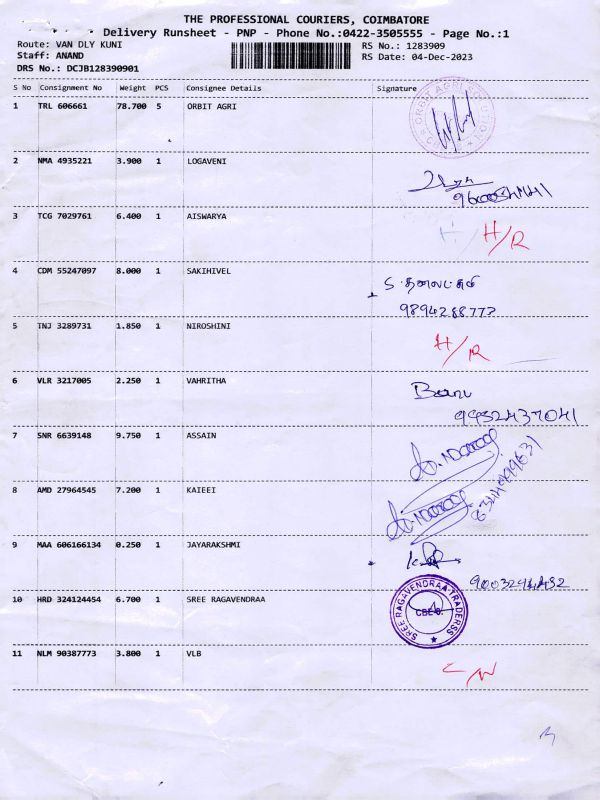 THE PROFESSIONAL COURIERS, COIMBATORE
Delivery Runsheet - PNP - Phone No.:0422-3505555 - Page No.:1
Route: VAN DLY KUNI RS No.: 1283909
Staff: ANAND RS Date: 04-Dec-2023
DRS No.: DCJB128390901
S No Consignment No Weight PCS Consignee Details Signature
1 TRL 606661 78.700 5 ORBIT AGRI
2 NMA 4935221 3.900 1 LOGAVENI
3 TCG 7029761 6.400 1 AISWARYA H/R
4 CDM 55247097 8.000 1 SAKIHIVEL
9894288773
5 TNJ 3289731 1.850 1 NIROSHINI H/R
6 VLR 3217005 2.250 1 VAHRITHA Banu
9952437041
7 SNR 6639148 9.750 1 ASSAIN
8 AMD 27964545 7.200 1 KAIEEI
9 MAA 606166134 0.250 1 JAYARAKSHMI
10 HRD 324124454 6.700 1 SREE RAGAVENDRAA SREE RAGAVENDRAA TRADERSS
11 NLM 90387773 3.800 1 VLB